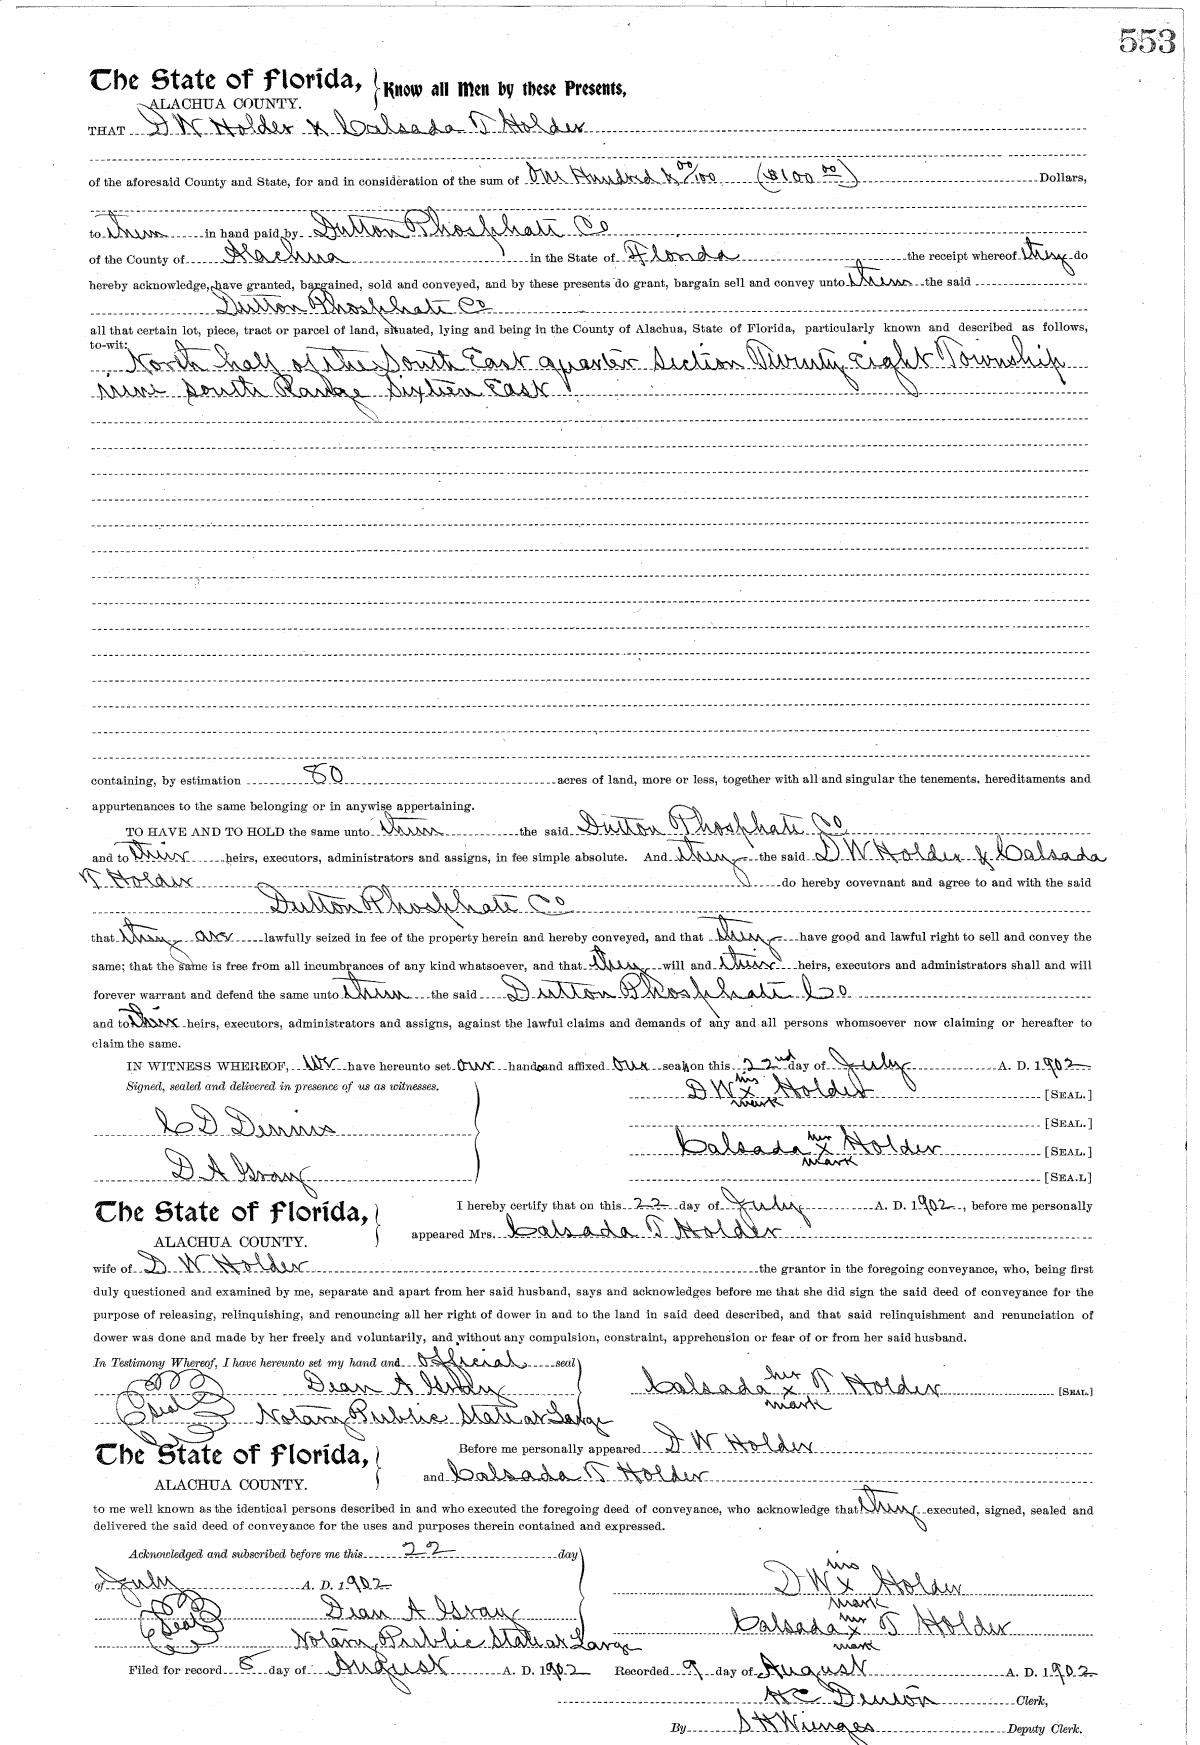 553
The State of Florida, Know all Men by these Presents,
ALACHUA COUNTY.
THAT D W Holder & Calsada T Holder
of the aforesaid County and State, for and in consideration of the sum of One Hundred & 00/100 ($100 00) Dollars,
to them in hand paid by Dutton Phosphate Co
of the County of Alachua in the State of Florida the receipt whereof they do
hereby acknowledge, have granted, bargained, sold and conveyed, and by these presents do grant, bargain sell and convey unto them the said
Dutton Phosphate Co
all that certain lot, piece, tract or parcel of land, situated, lying and being in the County of Alachua, State of Florida, particularly known and described as follows,
to-wit:
North half of the South East quarter Section Twenty Eight Township
nine South Range Sixteen East
containing, by estimation 80 acres of land, more or less, together with all and singular the tenements, hereditaments and
appurtenances to the same belonging or in anywise appertaining.
TO HAVE AND TO HOLD the same unto them the said Dutton Phosphate Co
and to their heirs, executors, administrators and assigns, in fee simple absolute. And they the said D W Holder & Calsada
T Holder do hereby covevnant and agree to and with the said
Dutton Phosphate Co
that they are lawfully seized in fee of the property herein and hereby conveyed, and that they have good and lawful right to sell and convey the
same; that the same is free from all incumbrances of any kind whatsoever, and that they will and their heirs, executors and administrators shall and will
forever warrant and defend the same unto them the said Dutton Phosphate Co
and to their heirs, executors, administrators and assigns, against the lawful claims and demands of any and all persons whomsoever now claiming or hereafter to
claim the same.
IN WITNESS WHEREOF, We have hereunto set our hands and affixed our seals on this 22nd day of July A. D. 1902
Signed, sealed and delivered in presence of us as witnesses.
D W his x mark Holder [SEAL.]
[SEAL.]
C D Dennis
Calsada her x mark Holder [SEAL.]
D A Gray
[SEA.L]
The State of Florida,
ALACHUA COUNTY.
I hereby certify that on this 22 day of July A. D. 1902, before me personally
appeared Mrs. Calsada T Holder
wife of D W Holder the grantor in the foregoing conveyance, who, being first
duly questioned and examined by me, separate and apart from her said husband, says and acknowledges before me that she did sign the said deed of conveyance for the
purpose of releasing, relinquishing, and renouncing all her right of dower in and to the land in said deed described, and that said relinquishment and renunciation of
dower was done and made by her freely and voluntarily, and without any compulsion, constraint, apprehension or fear of or from her said husband.
In Testimony Whereof, I have hereunto set my hand and official seal
Dean A Gray
Calsada her x mark T Holder [SEAL]
Seal Notary Public State at Large
The State of Florida,
ALACHUA COUNTY.
Before me personally appeared D W Holder
and Calsada T Holder
to me well known as the identical persons described in and who executed the foregoing deed of conveyance, who acknowledge that they executed, signed, sealed and
delivered the said deed of conveyance for the uses and purposes therein contained and expressed.
Acknowledged and subscribed before me this 22 day
of July A. D. 1902
D W his x mark Holder
Seal Dean A Gray
Calsada her x mark T Holder
Notary Public State at Large
Filed for record 8 day of August A. D. 1902 Recorded 9 day of August A. D. 1902
H C Denton Clerk,
By S H Wienges Deputy Clerk.